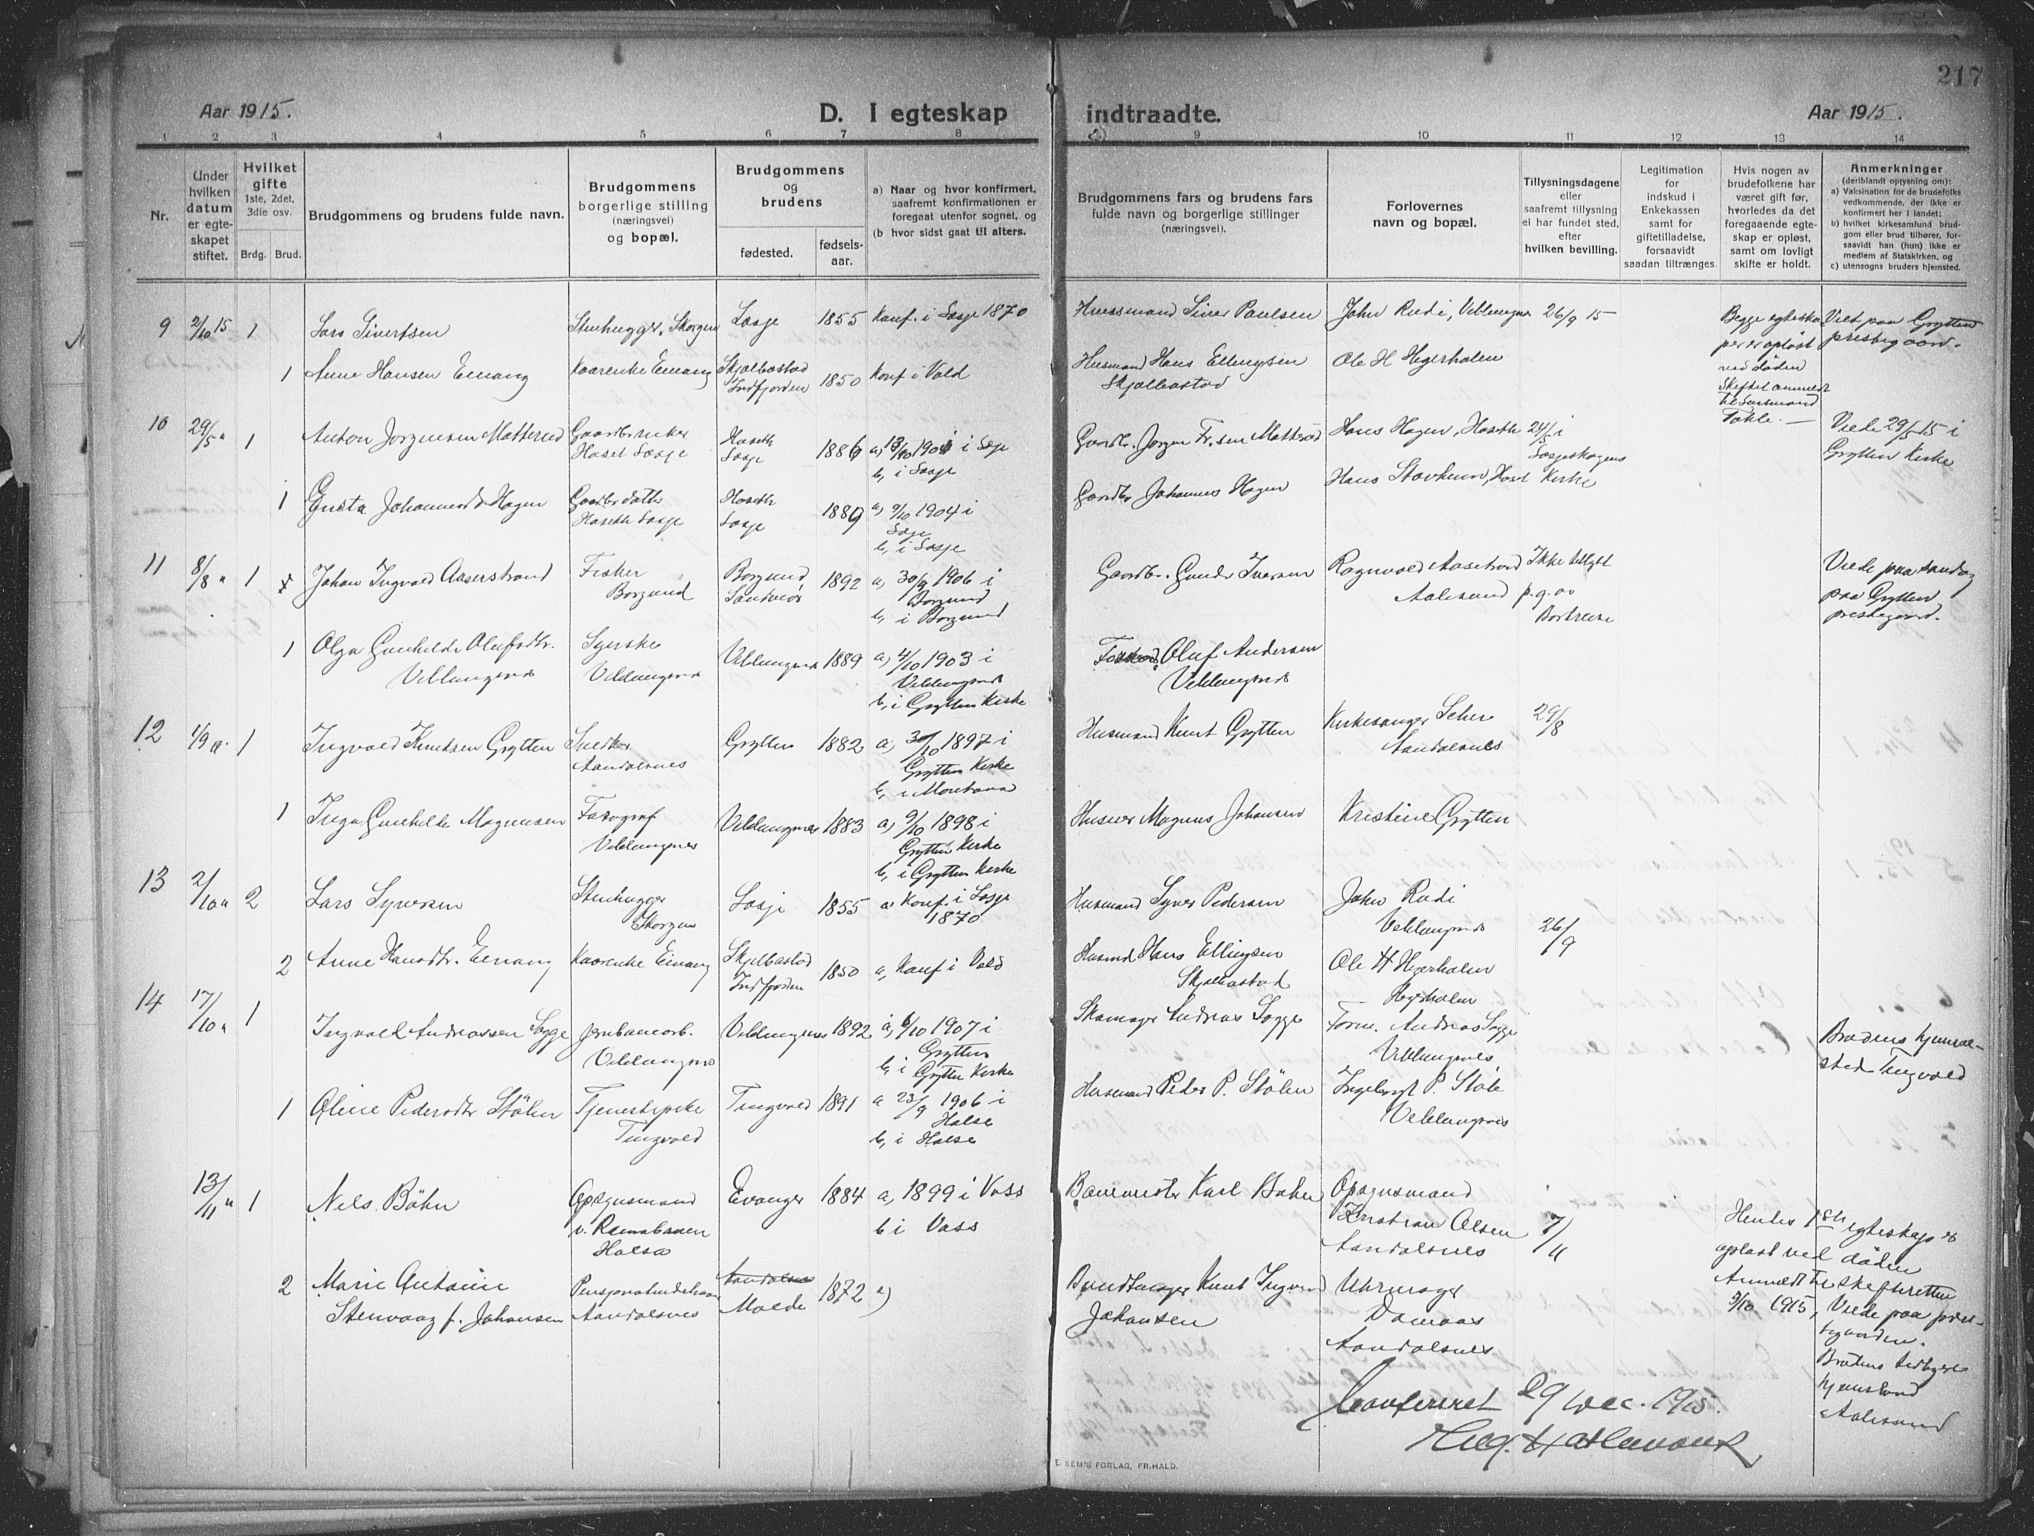 217
Aar 1915. D. I egteskap indtraadte. Aar 1915.
1 2 3 4 5 6 7 8 9 10 11 12 13 14
Nr.
Under hvilken datum er egteskapet stiftet.
Hvilket gifte 1ste, 2det, 3die osv.
Brdg. Brud.
Brudgommens og brudens fulde navn.
Brudgommens borgerlige stilling (næringsvei) og bopæl.
Brudgommens og brudens
fødested. fødsels-aar.
a) Naar og hvor konfirmert, saafremt konfirmationen er foregaat utenfor sognet, og
(b hvor sidst gaat til alters.
Brudgommens fars og brudens fars fulde navn og borgerlige stillinger (næringsvei).
Forlovernes navn og bopæl.
Tillysningsdagene eller saafremt tillysning ei har fundet sted, efter hvilken bevilling.
Legitimation for indskud i Enkekassen samt for giftetilladelse, forsaavidt saadan tiltrænges.
Hvis nogen av brudefolkene har været gift før, hvorledes da det foregaaende egteskap er opløst, samt om lovligt skifte er holdt.
Anmerkninger (deriblandt oplysning om):
a) Vaksination for de brudefolks vedkommende, der ikke er konfirmert her i landet;
b) hvilket kirkesamfund brudgom eller brud tilhører, forsaavidt han (hun) ikke er medlem af Statskirken, og
c) utensogns bruders hjemsted.
9 2/10 15 1 Lars Sivertsen Stenhugger, Skorgen Lesje 1855 Konf. i Lesje 1870 Husmand Siver Paulsen John Rødi, Veblungsnes 26/9 15 Begge egteskaper er opløst ved døden Skiftet anmeldt til Lensmand Tokle. Viet paa Grytten prestegaard.
1 Anne Hansen Einang Kaarenke Einang Skjelbostad Indfjorden 1850 Konf i Vold Husmand Hans Ellingsen Skjelbostad Ole H Hegerholen
10 29/5 " 1 Anton Jørgensen Gaardbruker Haset Lesje Hoseth Lesje 1886 i Lesje b, i Lesje Gaardbr. Jørgen Hans Hagen, Hoseth 24/5 i Lesjeskogens Kirke Viede 29/5 15 i Grytten Kirke
1 Gusta Johannesd. Hagen Gaardbr datter Hoseth Lesje Hoseth Lesje 1889 a) 9/10 1904 i Lesje b, i Lesje Gaardbr Johannes Hagen Hans
11 8/8 " 1 Johan Ingvald Aaserstrand Fisker Borgund Borgund 1892 a, 30/9 1906 i Borgund b, i Borgund Gaardbr. Gunder Iversen Ragnvald Aalesund Ikke tillyst p.g.av Bortreise Viede paa søndag paa Grytten prestegaard.
1 Olga Gunhilde Olufsdtr. Veblungsnes Syerske Veblungsnes Veblungsnes 1889 a) 4/10 1903 i Veblungsnes b, i Grytten Kirke Oluf Andersen Veblungsnes
12 4/9 " 1 Ingvald Knudsen Grytten Snedker Aandalsnes Grytten 1882 a, 1897 i Grytten Kirke b, i Montana Husmand Knut Grytten Kirkesanger Aandalsnes 29/8
1 Inga Gunhilde Magnusen Fotograf Veblungsnes Veblungsnes 1883 a) 9/10 1898 i Grytten Kirke b, i Grytten Kirke Magnus Johansen Kristine Grytten
13 2/10 " 2 Lars Syversen Stenhugger Skorgen Lesje 1855 a Konf. i Lesje 1870 Husmand Syver Pedersen John Rødi Veblungsnes 26/9
2 Anne Hansdtr. Einang Kaarenke Einang Skjelbostad Indfjorden 1850 a, Konf i Vold Husmd Hans Ellingsen Skjelbostad Ole H Hegerholen Hegerholen
14 17/10 " 1 Ingvald Andreassen Sogge Jernbanearb. Veblungsnes Veblungsnes 1892 a, 6/10 1907 i Grytten b, i Grytten Kirke Skomager Andreas Sogge Andreas Sogge Veblungsnes Brudens hjemsted Tingvold
1 Oline Pedersdtr Stølen Tjenestepike Tingvold Tingvold 1891 a 23/9 1906 i Halse b, i Halse Husmand Peder P. Stølen Ingebrigt P. Støle Veblungsnes
13/11 " 1 Nils Bøhn Opsynsmand v. Raumabanen Holsa Evanger 1884 a, 1899 i Voss b i Voss Banemester Karl Bøhn Opsynsmand Kristian Olsen Aandalsnes 7/11 Hendes 1ste egteskap er opløst ved døden Anmeldt til skifteretten 9/10 1915, Viede paa prestegaarden.
2 Marie Antonie Stenvaag f. Johansen Aandalsnes Aandalsnes Molde 1872 a) Knut Ingvard Johansen Uhrmager Damaas Aandalsnes Brudens tidligere hjemsted Aalesund
Confereret 29 Dec. 1915.
E. SEM'S FORLAG, FR.HALD.